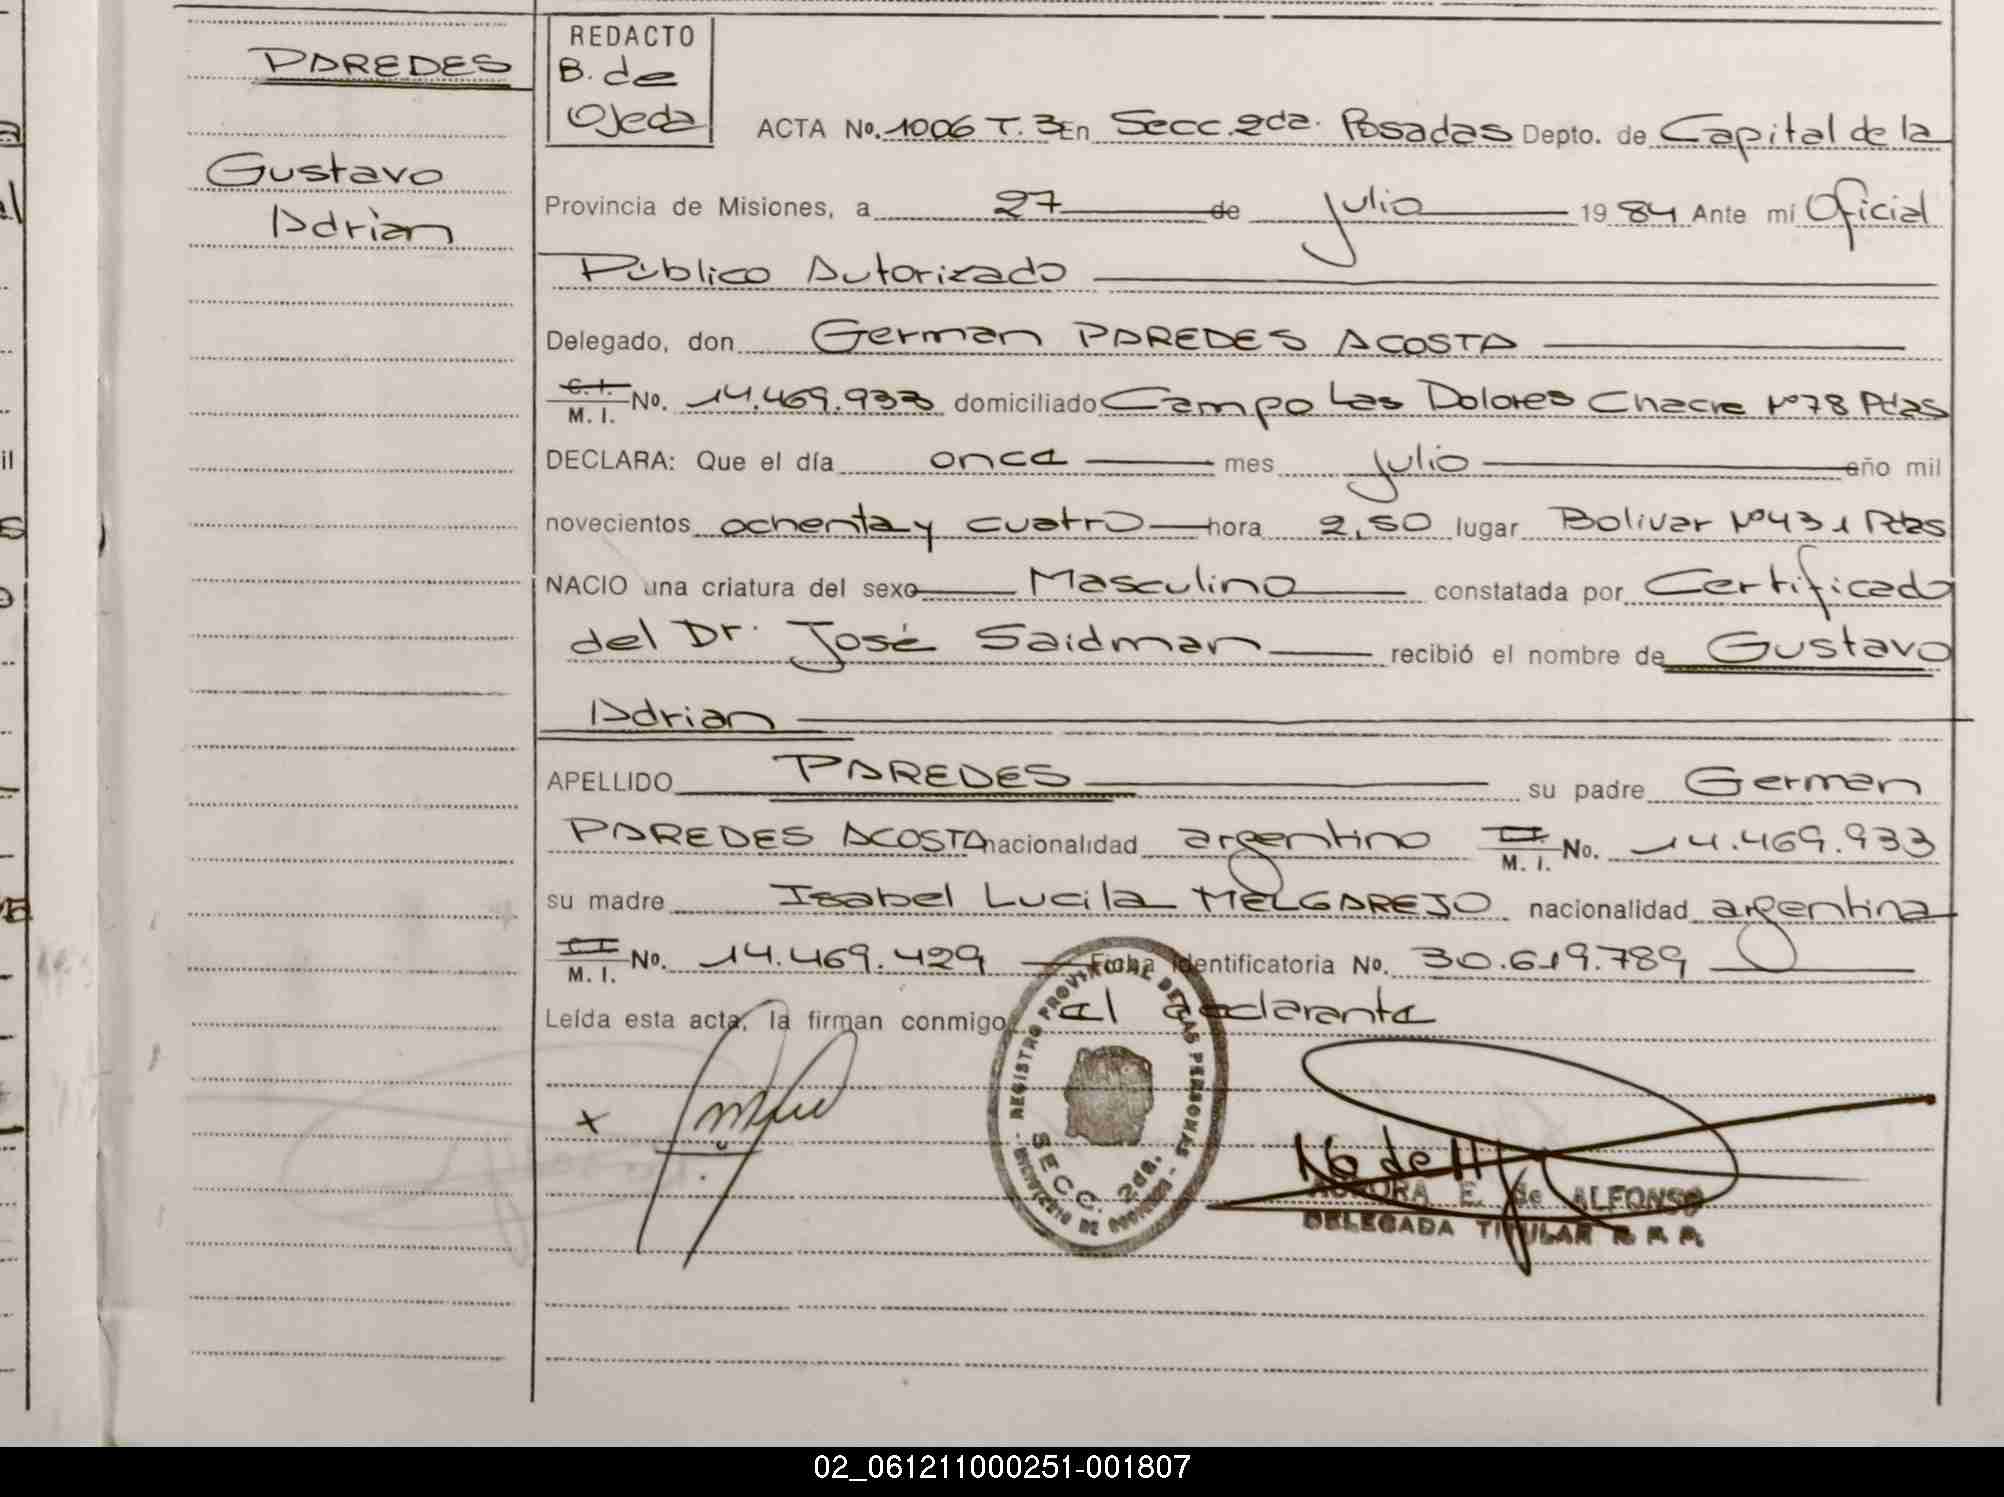 PAREDES
Gustavo
Adrian
REDACTO
B. de
Ojeda
ACTA No. 1006 T. 3 En Secc. 2da. Posadas Depto. de Capital de la
Provincia de Misiones, a 27 de julio 1984 Ante mí Oficial
Público Autorizado
Delegado, don German PAREDES ACOSTA
C. I.
M. I. No. 14.469.933 domiciliado Campo Las Dolores Chacra Nº 78 Pdas
DECLARA: Que el día once mes julio año mil
novecientos ochenta y cuatro hora 2,50 lugar Bolivar Nº 431 Pdas
NACIO una criatura del sexo Masculino constatada por Certificado
del Dr. José Saidman recibió el nombre de Gustavo
Adrian
APELLIDO PAREDES su padre German
PAREDES ACOSTA nacionalidad argentino C.I.
M. I. No. 14.469.933
su madre Isabel Lucila MELGAREJO nacionalidad argentina
C.I.
M. I. No. 14.469.429 Ficha identificatoria No. 30.619.789
Leída esta acta, la firman conmigo el declarante
REGISTRO PROVINCIAL DE LAS PERSONAS
SECC. 2da.
AURORA E. de ALFONSO
DELEGADA TITULAR R. P. P.
02_061211000251-001807